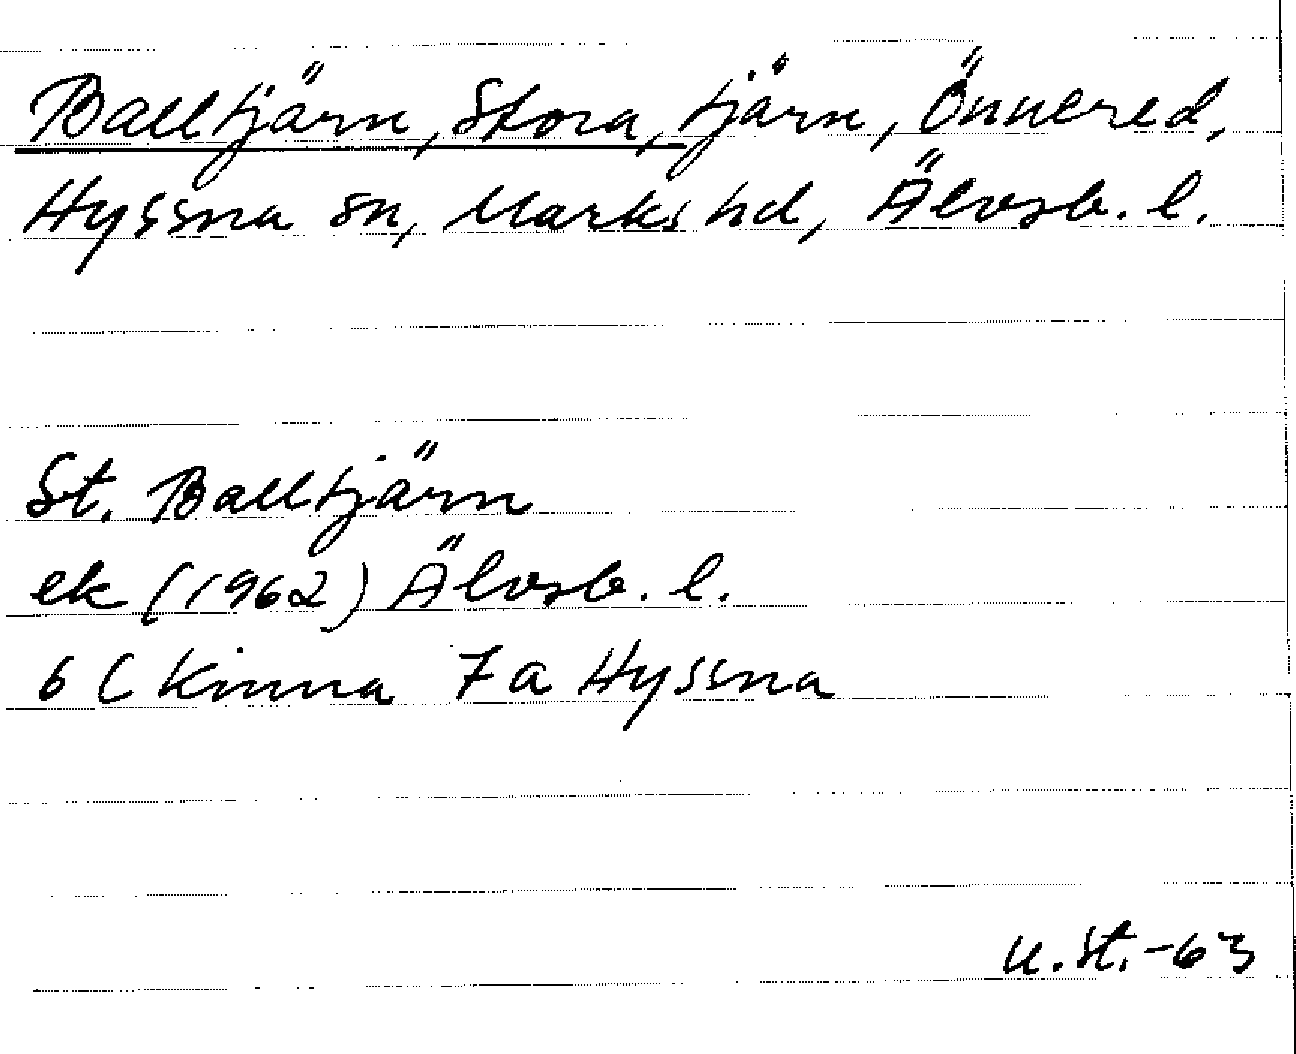 Balltjärn, Stora, tjärn, Önnered,
Hyssna sn, Marks hd, Älvsb. l.
St. Balltjärn
ek (1962) Älvsb. l.
6 C Kinna 7a Hyssna
U.St.-63